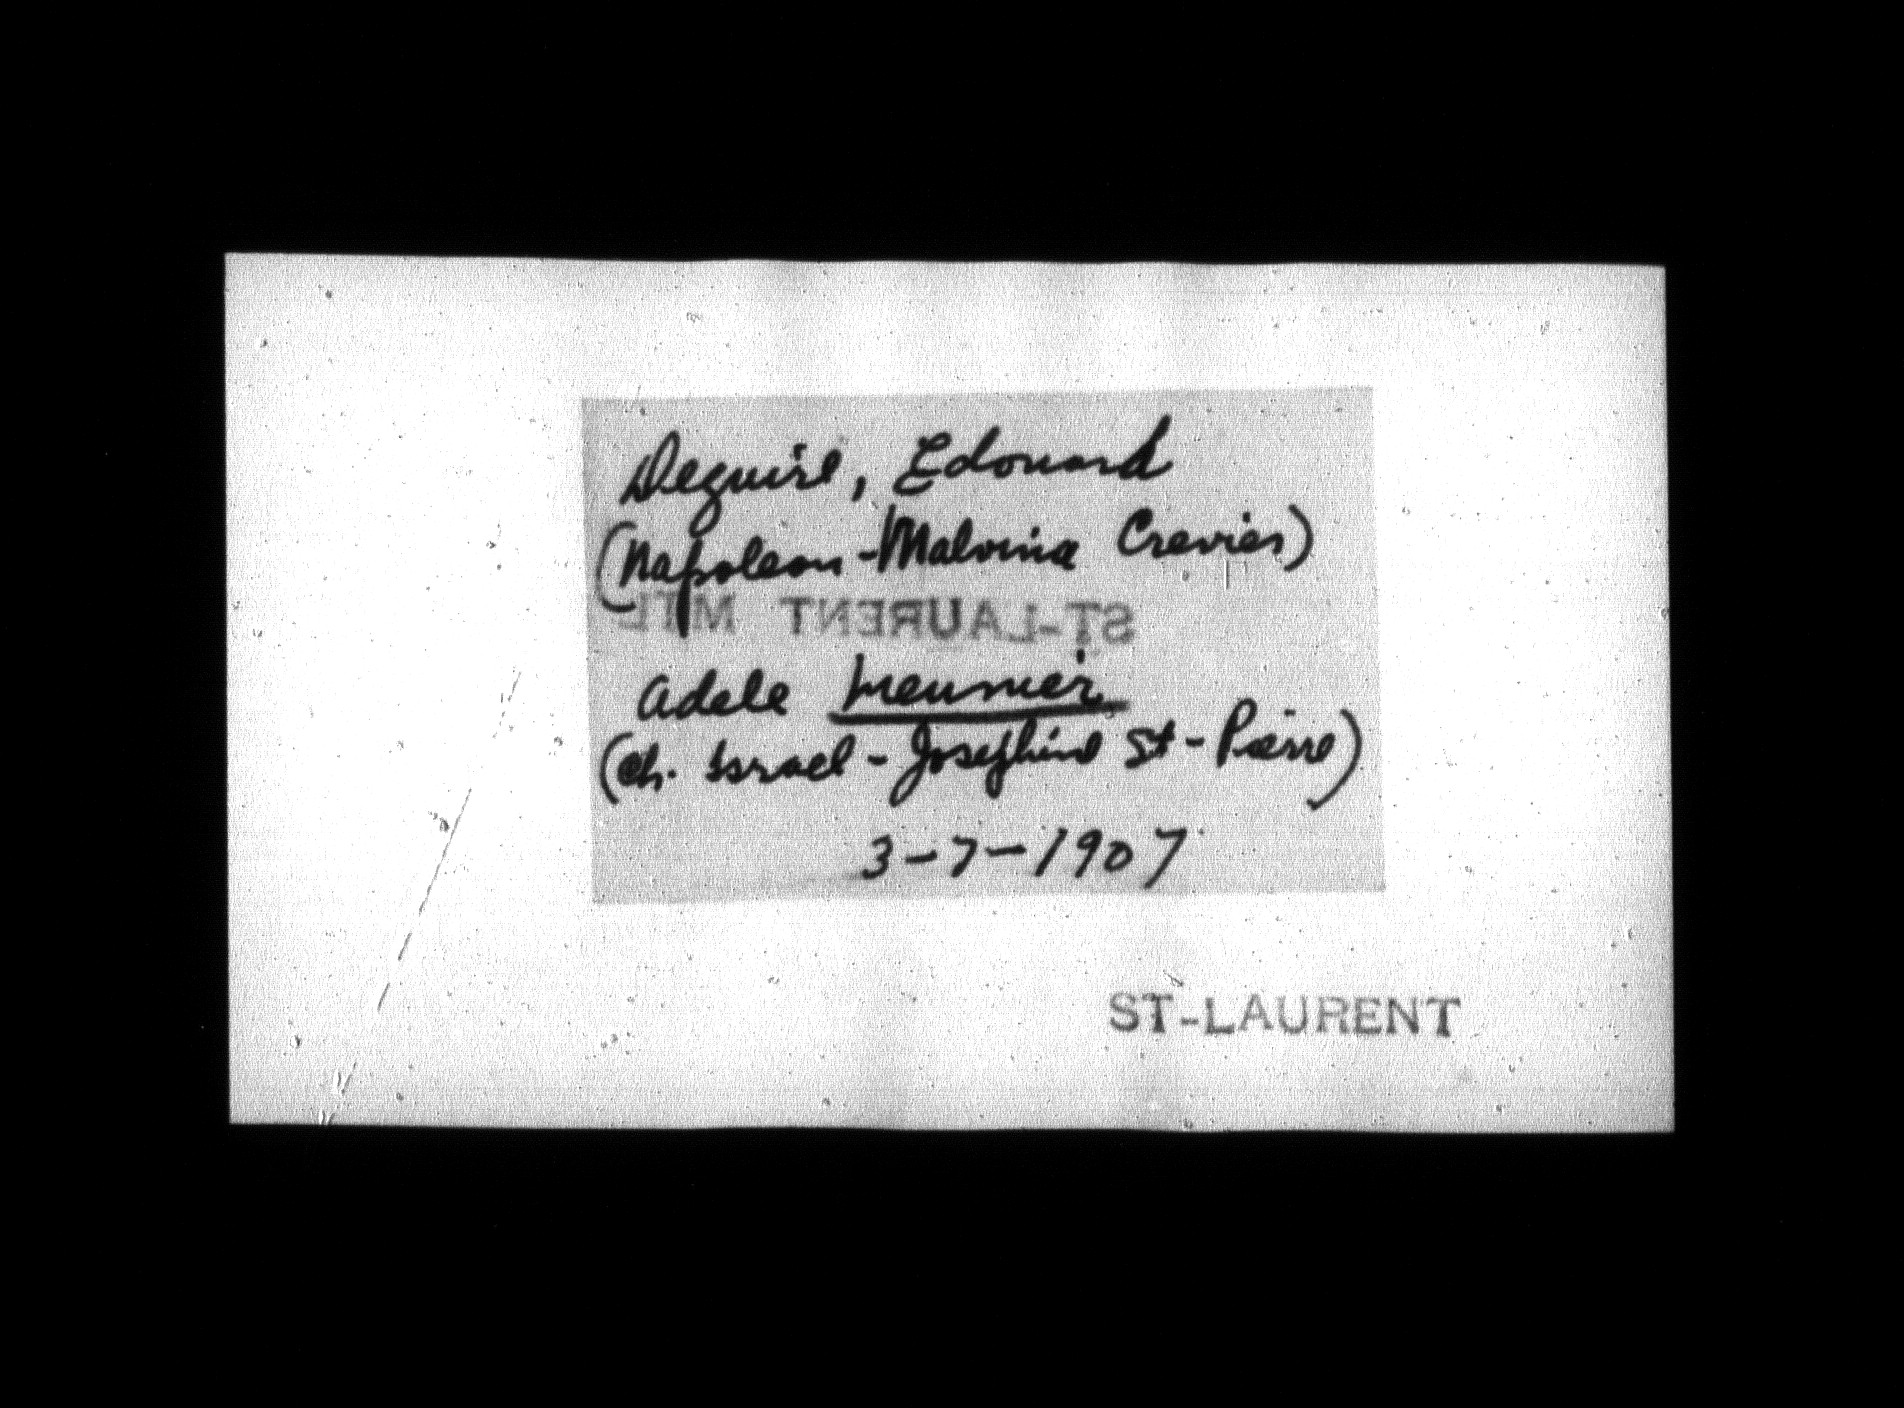 Deguire, Edouard
(Napoleon - Malvina Crevier)
ST-LAURENT MTL
Adele Meunier
(Ch. Israel - Josephine St-Pierre)
3-7-1907
ST-LAURENT